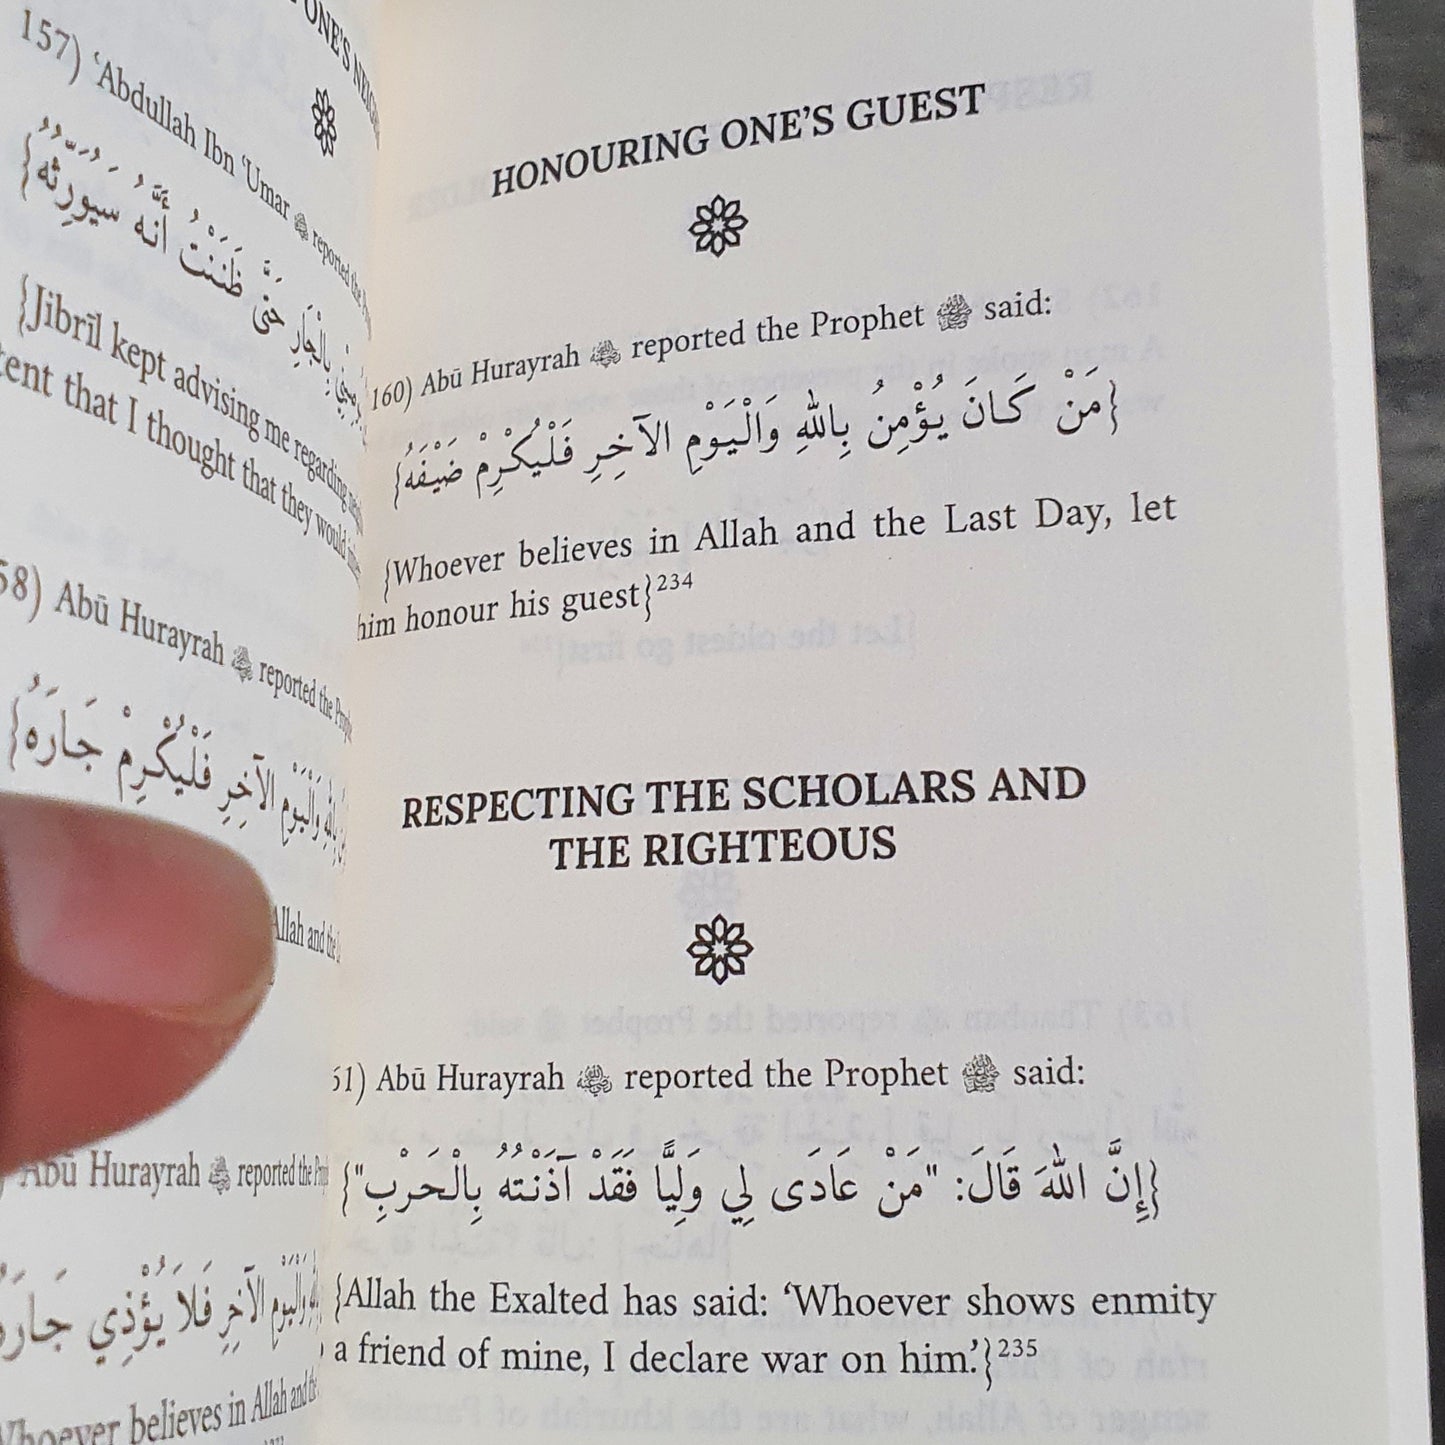 ONE'S
157) ‘Abdullah Ibn ‘Umar ﷺ reported the
حَتَّى ظَنَنْتُ أَنَّهُ سَيُوَرِّثُهُ}
{Jibrīl kept advising me regarding
that I thought that they would
58) Abū Hurayrah reported the
وَالْيَوْمِ الآخِرِ فَلْيُكْرِمْ جَارَهُ}
Allah and the
Abū Hurayrah reported the
وَالْيَوْمِ الآخِرِ فَلَا يُؤْذِي
Whoever believes in Allah and the
HONOURING ONE'S GUEST
160) Abū Hurayrah reported the Prophet ﷺ said:
{مَنْ كَانَ يُؤْمِنُ بِاللهِ وَالْيَوْمِ الآخِرِ فَلْيُكْرِمْ ضَيْفَهُ}
{Whoever believes in Allah and the Last Day, let
him honour his guest}234
RESPECTING THE SCHOLARS AND
THE RIGHTEOUS
61) Abū Hurayrah reported the Prophet ﷺ said:
{إِنَّ اللهَ قَالَ: "مَنْ عَادَى لِي وَلِيًّا فَقَدْ آذَنْتُهُ بِالْحَرْبِ"}
{Allah the Exalted has said: ‘Whoever shows enmity
a friend of mine, I declare war on him.’}235